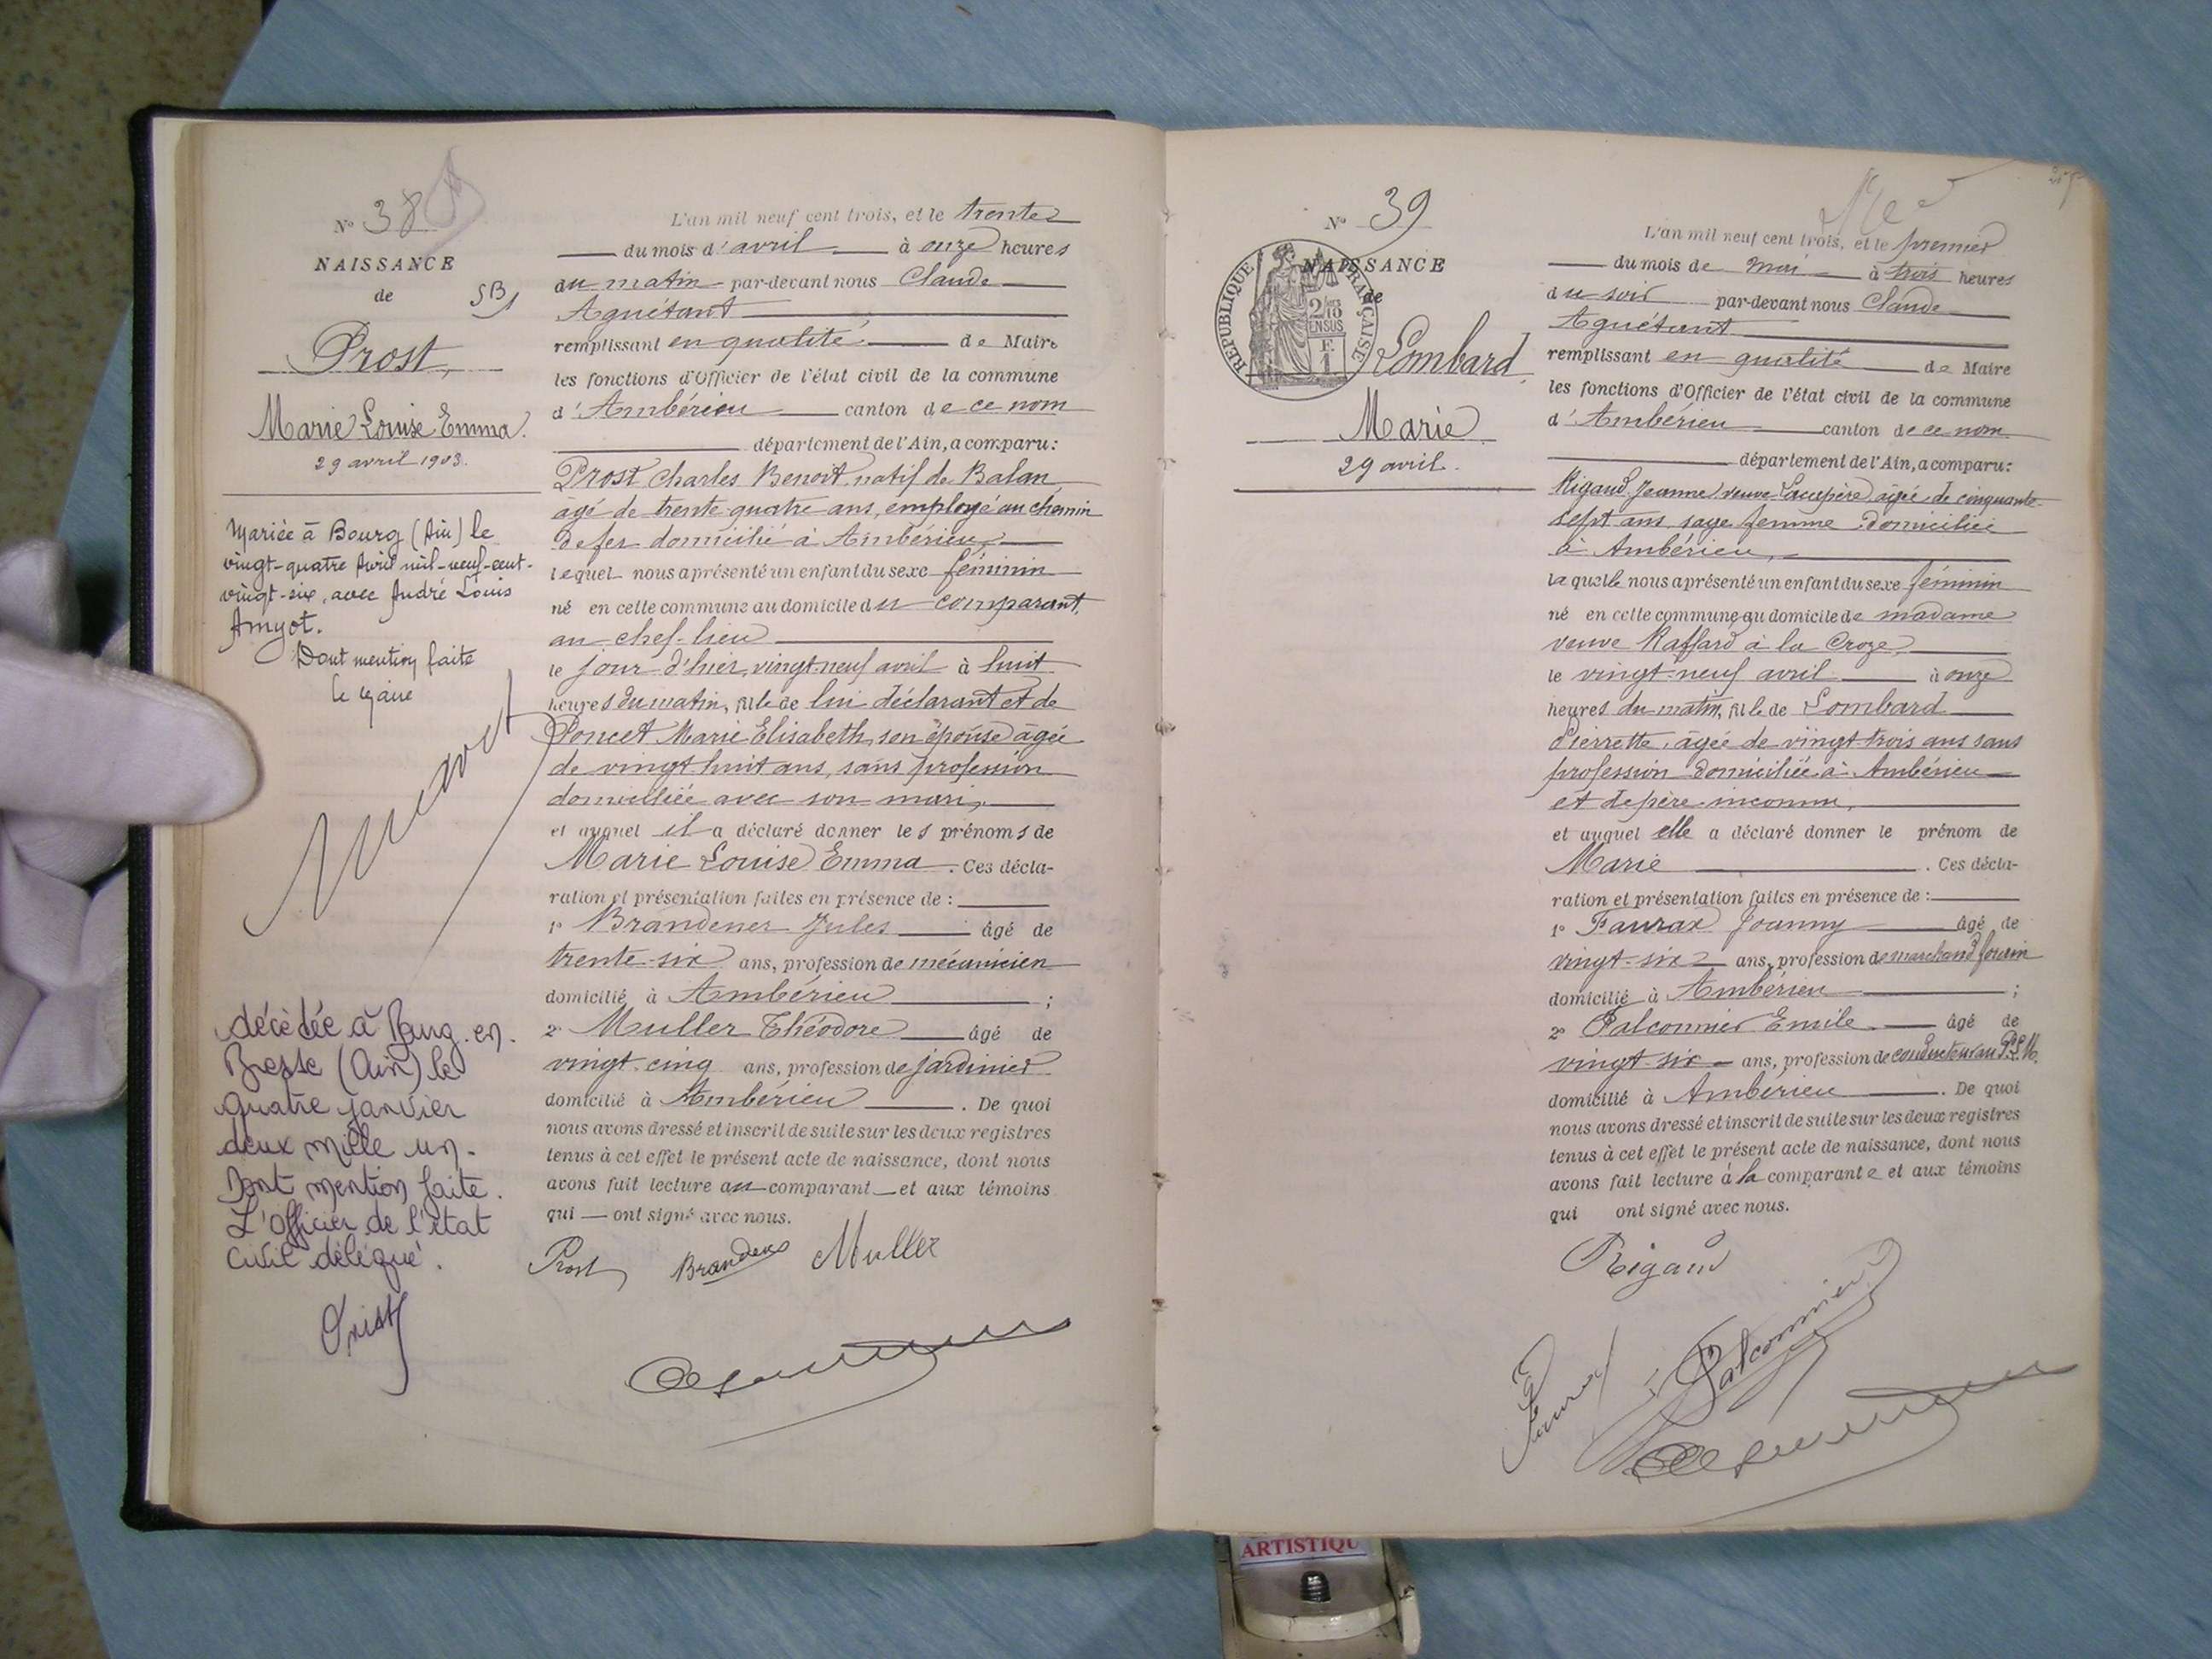 N° 38
NAISSANCE
de
Prost,
Marie Louise Emma.
29 avril 1903.
Mariée à Bourg (Ain) le
vingt-quatre Avril mil-neuf-cent-
vingt-six, avec André Louis
Amyot.
Dont mention faite
le Maire
décédée à Bourg-en-
Bresse (Ain) le
quatre janvier
deux mille un.
Dont mention faite.
L'Officier de l'état
civil délégué.
L'an mil neuf cent trois, et le trente
du mois d'avril à onze heures
du matin par-devant nous Claude
Aguétant
remplissant en qualité de Maire
les fonctions d'Officier de l'état civil de la commune
d'Ambérieu canton de ce nom
département de l'Ain, a comparu:
Prost Charles Benoit, natif de Balan,
âgé de trente-quatre ans, employé au chemin
de fer domicilié à Ambérieu,
lequel nous a présenté un enfant du sexe féminin
né en cette commune au domicile du comparant,
au chef-lieu
le jour d'hier, vingt-neuf avril à huit
heures du matin, fille de lui déclarant et de
Poncet Marie Elisabeth, son épouse âgée
de vingt huit ans, sans profession
domiciliée avec son mari,
et auquel il a déclaré donner les prénoms de
Marie Louise Emma. Ces décla-
ration et présentation faites en présence de :
1° Brandener Jules âgé de
trente-six ans, profession de mécanicien
domicilié à Ambérieu ;
2° Muller Théodore âgé de
vingt-cinq ans, profession de jardinier
domicilié à Ambérieu. De quoi
nous avons dressé et inscrit de suite sur les deux registres
tenus à cet effet le présent acte de naissance, dont nous
avons fait lecture au comparant et aux témoins
qui ont signé avec nous.
Prost Brandener Muller
N° 39
NAISSANCE
de
RÉPUBLIQUE FRANÇAISE
2/10 EN SUS
F. 1
Lombard
Marie
29 avril.
L'an mil neuf cent trois, et le premier
du mois de mai à trois heures
du soir par-devant nous Claude
Aguétant
remplissant en qualité de Maire
les fonctions d'Officier de l'état civil de la commune
d'Ambérieu canton de ce nom
département de l'Ain, a comparu:
Rigaud Jeanne veuve âgée de cinquante-
sept ans, sage femme domiciliée
à Ambérieu,
laquelle nous a présenté un enfant du sexe féminin
né en cette commune au domicile de madame
veuve Raffard à la Croze,
le vingt-neuf avril à onze
heures du matin, fille de Lombard
Pierrette, âgée de vingt-trois ans sans
profession domiciliée à Ambérieu
et de père inconnu,
et auquel elle a déclaré donner le prénom de
Marie. Ces décla-
ration et présentation faites en présence de :
1° Faurax Joanny âgé de
vingt-six ans, profession de marchand forain
domicilié à Ambérieu ;
2° Falconnier Emile âgé de
vingt-six ans, profession de conducteur au P.L.M.
domicilié à Ambérieu. De quoi
nous avons dressé et inscrit de suite sur les deux registres
tenus à cet effet le présent acte de naissance, dont nous
avons fait lecture à la comparante et aux témoins
qui ont signé avec nous.
Rigaud
Faurax
Falconnier
ARTISTIQU